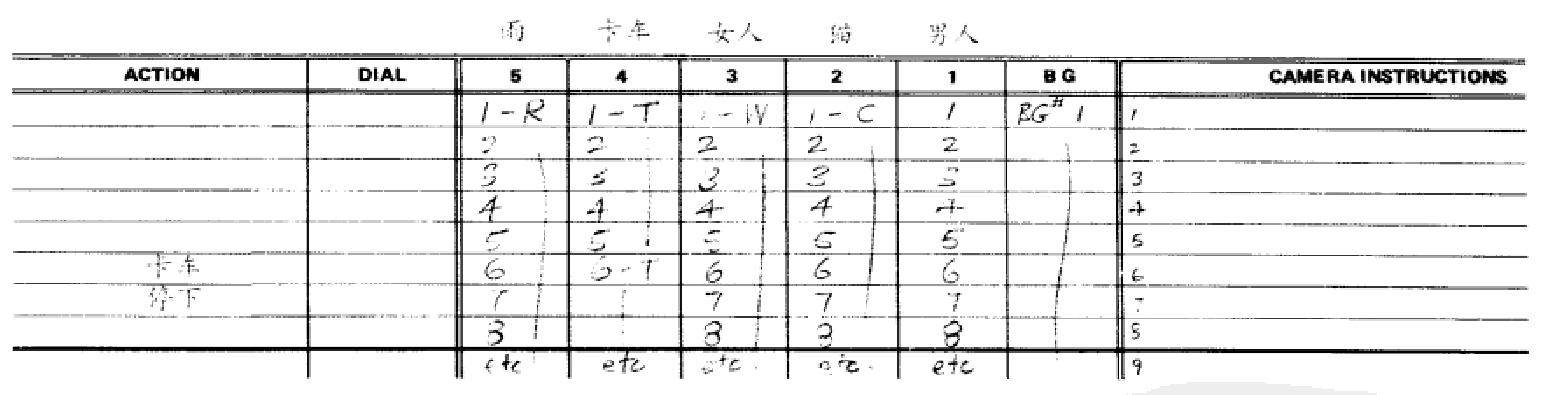 雨 卡车 女人 猫 男人
ACTION DIAL 5 4 3 2 1 BG CAMERA INSTRUCTIONS
1-R 1-T 1-W 1-C 1 BG#1 1
2 2 2 2 2 2
3 3 3 3 3 3
4 4 4 4 4 4
5 5 5 5 5 5
卡车 6 6-T 6 6 6 6
停下 7 7 7 7 7
8 8 8 8 8
etc etc etc. etc. etc 9